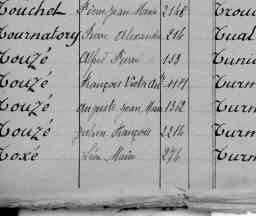 Touchet Pierre Jean Marie 2148 Trou
Tournatory Pierre Alexandre 216 Tual
Touzé Alfred Pierre 153 Tuni
Touzé François Victor 1191 Turm
Touzé Auguste Jean Marie 1312 Turm
Touzé Julien François 2216 Turm
Toxé Léon Marie 276 Turm